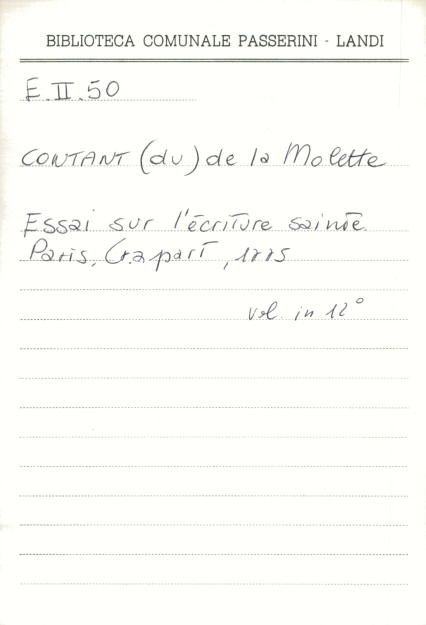 BIBLIOTECA COMUNALE PASSERINI - LANDI
E.II.50
CONTANT (du) de la Molette
Essai sur l'écriture sainte.
Paris, Crapart, 1775
vol. in 12°